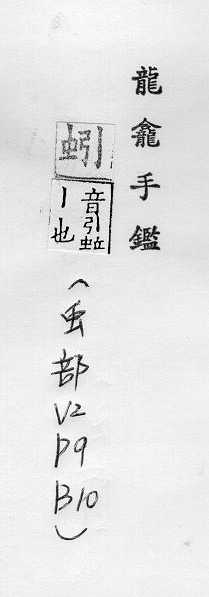 龍龕手鑑
蚓
音引蚯
丨也
(虫部V2P9B10)